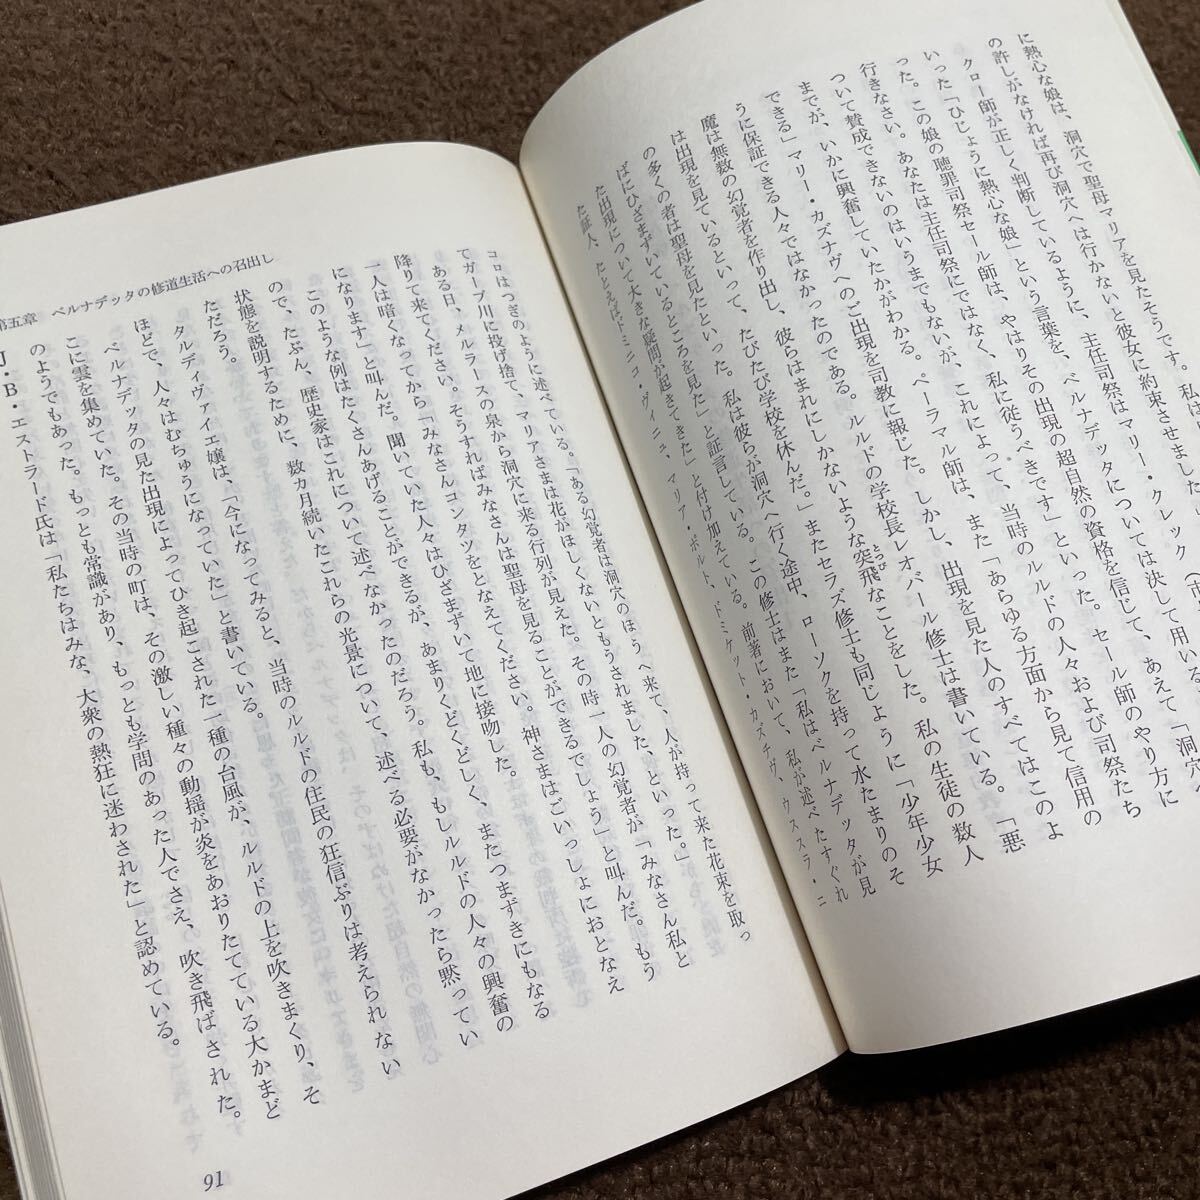 に熱心な娘は、洞穴で聖母マリアを見たそうです。私は
の許しがなければ再び洞穴へは行かないと彼女に約束させました
クロー師が正しく判断しているように、主任司祭はマリー・クレック（市
いった「ひじょうに熱心な娘」という言葉を、ベルナデッタについては決して用い
った。この娘の聴罪司祭セール師は、やはりその出現の超自然の資格を信じて、あえて「洞穴へ
行きなさい。あなたは主任司祭にではなく、私に従うべきです」といった。セール師のやり方に
ついて賛成できないのはいうまでもないが、これによって、当時のルルドの人々および司祭たち
までが、いかに興奮していたかがわかる。ペーラマル師は、また「あらゆる方面から見て信用の
できる」マリー・カズナヴへのご出現を司教に報じた。しかし、出現を見た人のすべてはこのよ
うに保証できる人々ではなかったのである。ルルドの学校長レオバール修士は書いている。「悪
魔は無数の幻覚者を作り出し、彼らはまれにしかないような突飛なことをした。私の生徒の数人
とっぴ
は出現を見ているといって、たびたび学校を休んだ。」またセラズ修士も同じように「少年少女
の多くの者は聖母を見たといった。私は彼らが洞穴へ行く途中、ローソクを持って水たまりのそ
ばにひざまずいているところを見た」と証言している。この修士はまた「私はベルナデッタが見
た出現について大きな疑問が起きてきた」と付け加えている。前著において、私が述べたすぐれ
た証人、たとえばドミニコ・ヴィニュ、マリア・ポルト、ドミケット・カズナヴ、ウススラ・ニ
コロはつぎのように述べている。「ある幻覚者は洞穴のほうへ来て、一人が持って来た花束を取っ
てガーブ川に投げ捨て、マリアさまは花がほしくないともうされました、といった。」
ある日、メルラースの泉から洞穴に来る行列が見えた。その時一人の幻覚者が「みなさん私と
降りて来てください。そうすればみなさんは聖母を見ることができるでしょう」と叫んだ。もう
一人は暗くなってから「みなさんコンタツをとなえてください。神さまはごいっしょにおとなえ
になります」と叫んだ。聞いていた人々はひざまずいて地に接吻した。
このような例はたくさんあげることができるが、あまりくどくどしく、またつまずきにもなる
ので、たぶん、歴史家はこれについて述べなかったのだろう。私も、もしルルドの人々の興奮の
状態を説明するために、数カ月続いたこれらの光景について、述べる必要がなかったら黙ってい
ただろう。
タルディヴァイエ嬢は、「今になってみると、当時のルルドの住民の狂信ぶりは考えられない
ほどで、人々はむちゅうになっていた」と書いている。
ベルナデッタの見た出現によってひき起こされた一種の台風が、ルルドの上を吹きまくり、そ
こに雲を集めていた。その当時の町は、その激しい種々の動揺が炎をあおりたてている大かまど
のようでもあった。もっとも常識があり、もっとも学問のあった人でさえ、吹き飛ばされた。
J・B・エストラード氏は「私たちはみな、大衆の熱狂に迷わされた」と認めている。
第五章　ベルナデッタの修道生活への召出し
91